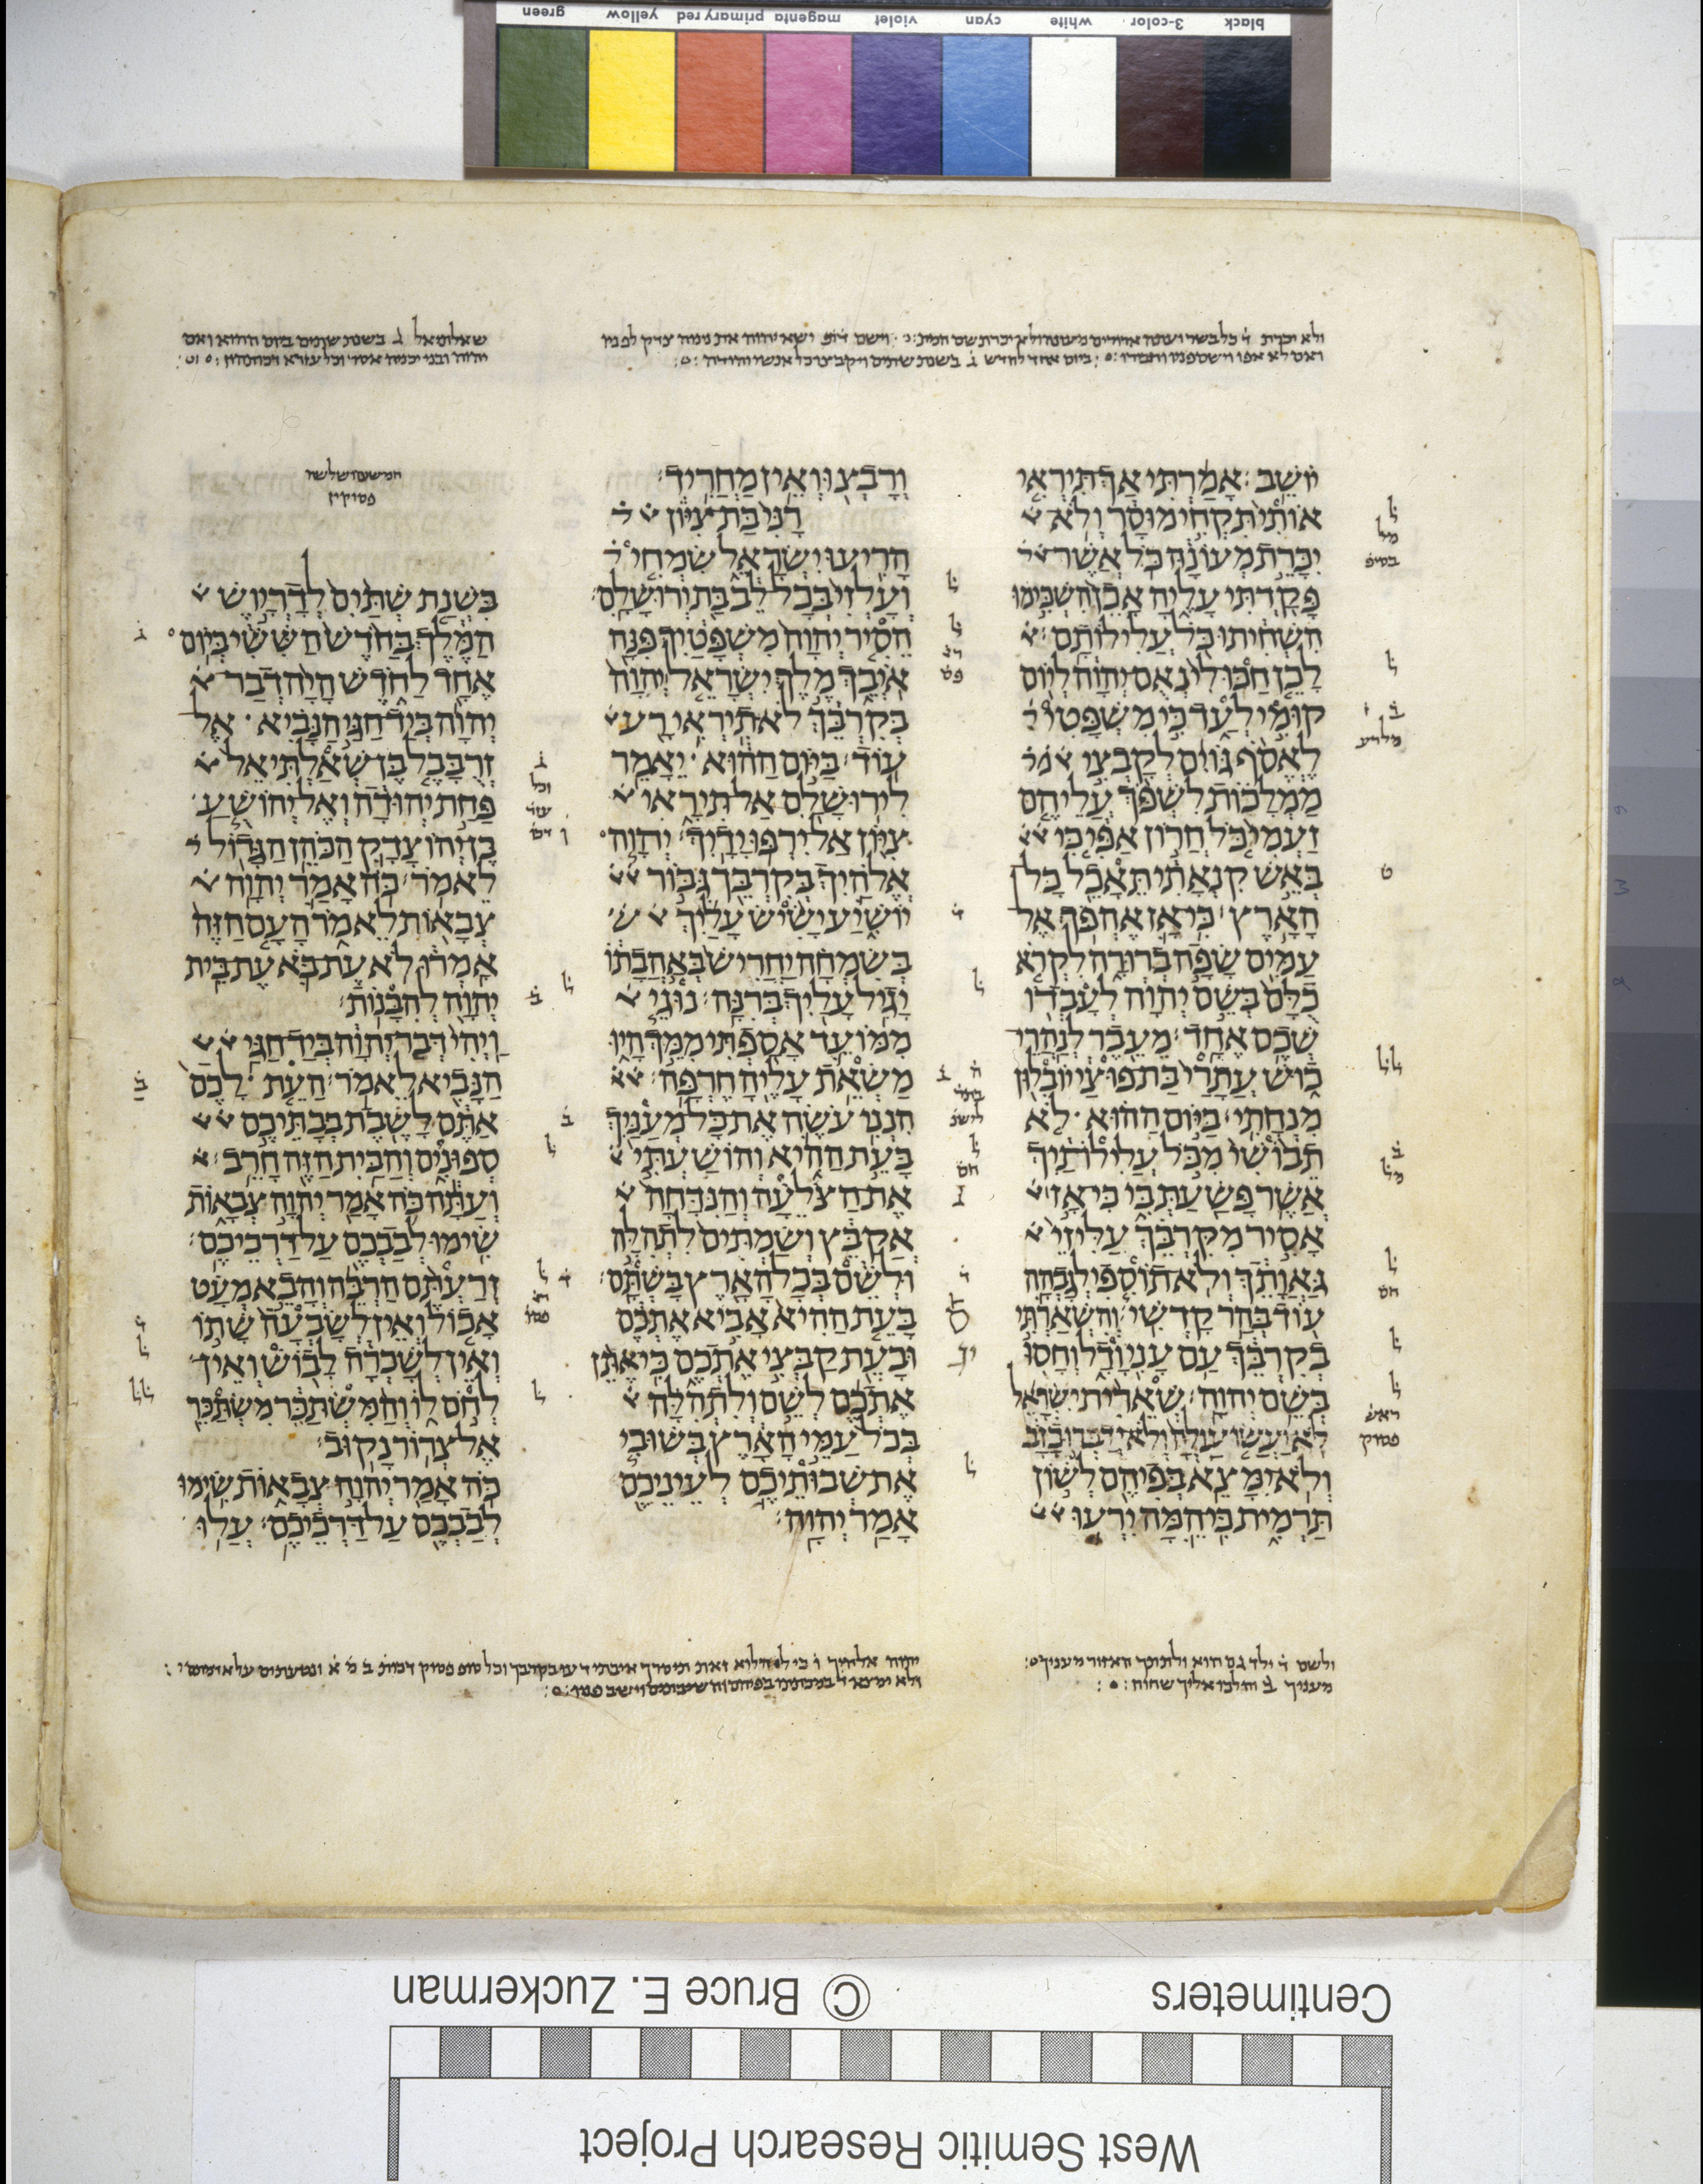 black 3-color white cyan violet magenta primary red yellow green
יוֹשֵׁב׃ אָמַרְתִּי אַךְ־תִּירְאִי
אוֹתִי תִּקְחִי מוּסָר וְלֹא־
יִכָּרֵת מְעוֹנָהּ כֹּל אֲשֶׁר־
פָּקַדְתִּי עָלֶיהָ אָכֵן הִשְׁכִּימוּ
הִשְׁחִיתוּ כֹּל עֲלִילוֹתָם׃
לָכֵן חַכּוּ־לִי נְאֻם־יְהוָה לְיוֹם
קוּמִי לְעַד כִּי מִשְׁפָּטִי
לֶאֱסֹף גּוֹיִם לְקָבְצִי
מַמְלָכוֹת לִשְׁפֹּךְ עֲלֵיהֶם
זַעְמִי כֹּל חֲרוֹן אַפִּי כִּי
בְּאֵשׁ קִנְאָתִי תֵּאָכֵל כָּל־
הָאָרֶץ׃ כִּי־אָז אֶהְפֹּךְ אֶל־
עַמִּים שָׂפָה בְרוּרָה לִקְרֹא
כֻלָּם בְּשֵׁם יְהוָה לְעָבְדוֹ
שְׁכֶם אֶחָד׃ מֵעֵבֶר לְנַהֲרֵי־
כוּשׁ עֲתָרַי בַּת־פּוּצַי יוֹבִלוּן
מִנְחָתִי׃ בַּיּוֹם הַהוּא לֹא
תֵבוֹשִׁי מִכֹּל עֲלִילֹתַיִךְ
אֲשֶׁר פָּשַׁעַתְּ בִּי כִּי־אָז
אָסִיר מִקִּרְבֵּךְ עַלִּיזֵי
גַּאֲוָתֵךְ וְלֹא־תוֹסִפִי לְגָבְהָה
עוֹד בְּהַר קָדְשִׁי׃ וְהִשְׁאַרְתִּי
בְקִרְבֵּךְ עַם עָנִי וָדָל וְחָסוּ
בְּשֵׁם יְהוָה׃ שְׁאֵרִית יִשְׂרָאֵל
לֹא־יַעֲשׂוּ עַוְלָה וְלֹא־יְדַבְּרוּ כָזָב
וְלֹא־יִמָּצֵא בְּפִיהֶם לְשׁוֹן
תַּרְמִית כִּי־הֵמָּה יִרְעוּ
וְרָבְצוּ וְאֵין מַחֲרִיד׃
רָנִּי בַּת־צִיּוֹן
הָרִיעוּ יִשְׂרָאֵל שִׂמְחִי
וְעָלְזִי בְּכָל־לֵב בַּת יְרוּשָׁלִָם׃
הֵסִיר יְהוָה מִשְׁפָּטַיִךְ פִּנָּה
אֹיְבֵךְ מֶלֶךְ יִשְׂרָאֵל יְהוָה
בְּקִרְבֵּךְ לֹא־תִירְאִי רָע
עוֹד׃ בַּיּוֹם הַהוּא יֵאָמֵר
לִירוּשָׁלִַם אַל־תִּירָאִי
צִיּוֹן אַל־יִרְפּוּ יָדָיִךְ׃ יְהוָה
אֱלֹהַיִךְ בְּקִרְבֵּךְ גִּבּוֹר
יוֹשִׁיעַ יָשִׂישׂ עָלַיִךְ
בְּשִׂמְחָה יַחֲרִישׁ בְּאַהֲבָתוֹ
יָגִיל עָלַיִךְ בְּרִנָּה׃ נוּגֵי
מִמּוֹעֵד אָסַפְתִּי מִמֵּךְ הָיוּ
מַשְׂאֵת עָלֶיהָ חֶרְפָּה׃
הִנְנִי עֹשֶׂה אֶת־כָּל־מְעַנַּיִךְ
בָּעֵת הַהִיא וְהוֹשַׁעְתִּי
אֶת־הַצֹּלֵעָה וְהַנִּדָּחָה
אֲקַבֵּץ וְשַׂמְתִּים לִתְהִלָּה
וּלְשֵׁם בְּכָל־הָאָרֶץ בָּשְׁתָּם׃
בָּעֵת הַהִיא אָבִיא אֶתְכֶם
וּבָעֵת קַבְּצִי אֶתְכֶם כִּי־אֶתֵּן
אֶתְכֶם לְשֵׁם וְלִתְהִלָּה
בְּכֹל עַמֵּי הָאָרֶץ בְּשׁוּבִי
אֶת־שְׁבוּתֵיכֶם לְעֵינֵיכֶם
אָמַר יְהוָה׃
חמשים ושלשה
פסוקין
בִּשְׁנַת שְׁתַּיִם לְדָרְיָוֶשׁ
הַמֶּלֶךְ בַּחֹדֶשׁ הַשִּׁשִּׁי בְּיוֹם
אֶחָד לַחֹדֶשׁ הָיָה דְבַר־
יְהוָה בְּיַד־חַגַּי הַנָּבִיא אֶל־
זְרֻבָּבֶל בֶּן־שְׁאַלְתִּיאֵל
פַּחַת יְהוּדָה וְאֶל־יְהוֹשֻׁעַ
בֶּן־יְהוֹצָדָק הַכֹּהֵן הַגָּדוֹל
לֵאמֹר׃ כֹּה אָמַר יְהוָה
צְבָאוֹת לֵאמֹר הָעָם הַזֶּה
אָמְרוּ לֹא עֶת־בֹּא עֶת־בֵּית
יְהוָה לְהִבָּנוֹת׃
וַיְהִי דְּבַר־יְהוָה בְּיַד־חַגַּי
הַנָּבִיא לֵאמֹר׃ הַעֵת לָכֶם
אַתֶּם לָשֶׁבֶת בְּבָתֵּיכֶם
סְפוּנִים וְהַבַּיִת הַזֶּה חָרֵב׃
וְעַתָּה כֹּה אָמַר יְהוָה צְבָאוֹת
שִׂימוּ לְבַבְכֶם עַל־דַּרְכֵיכֶם׃
זְרַעְתֶּם הַרְבֵּה וְהָבֵא מְעָט
אָכוֹל וְאֵין־לְשָׂבְעָה שָׁתוֹ
וְאֵין־לְשָׁכְרָה לָבוֹשׁ וְאֵין־
לְחֹם לוֹ וְהַמִּשְׂתַּכֵּר מִשְׂתַּכֵּר
אֶל־צְרוֹר נָקוּב׃
כֹּה אָמַר יְהוָה צְבָאוֹת שִׂימוּ
לְבַבְכֶם עַל־דַּרְכֵיכֶם׃ עֲלוּ
Centimeters © Bruce E. Zuckerman
West Semitic Research Project